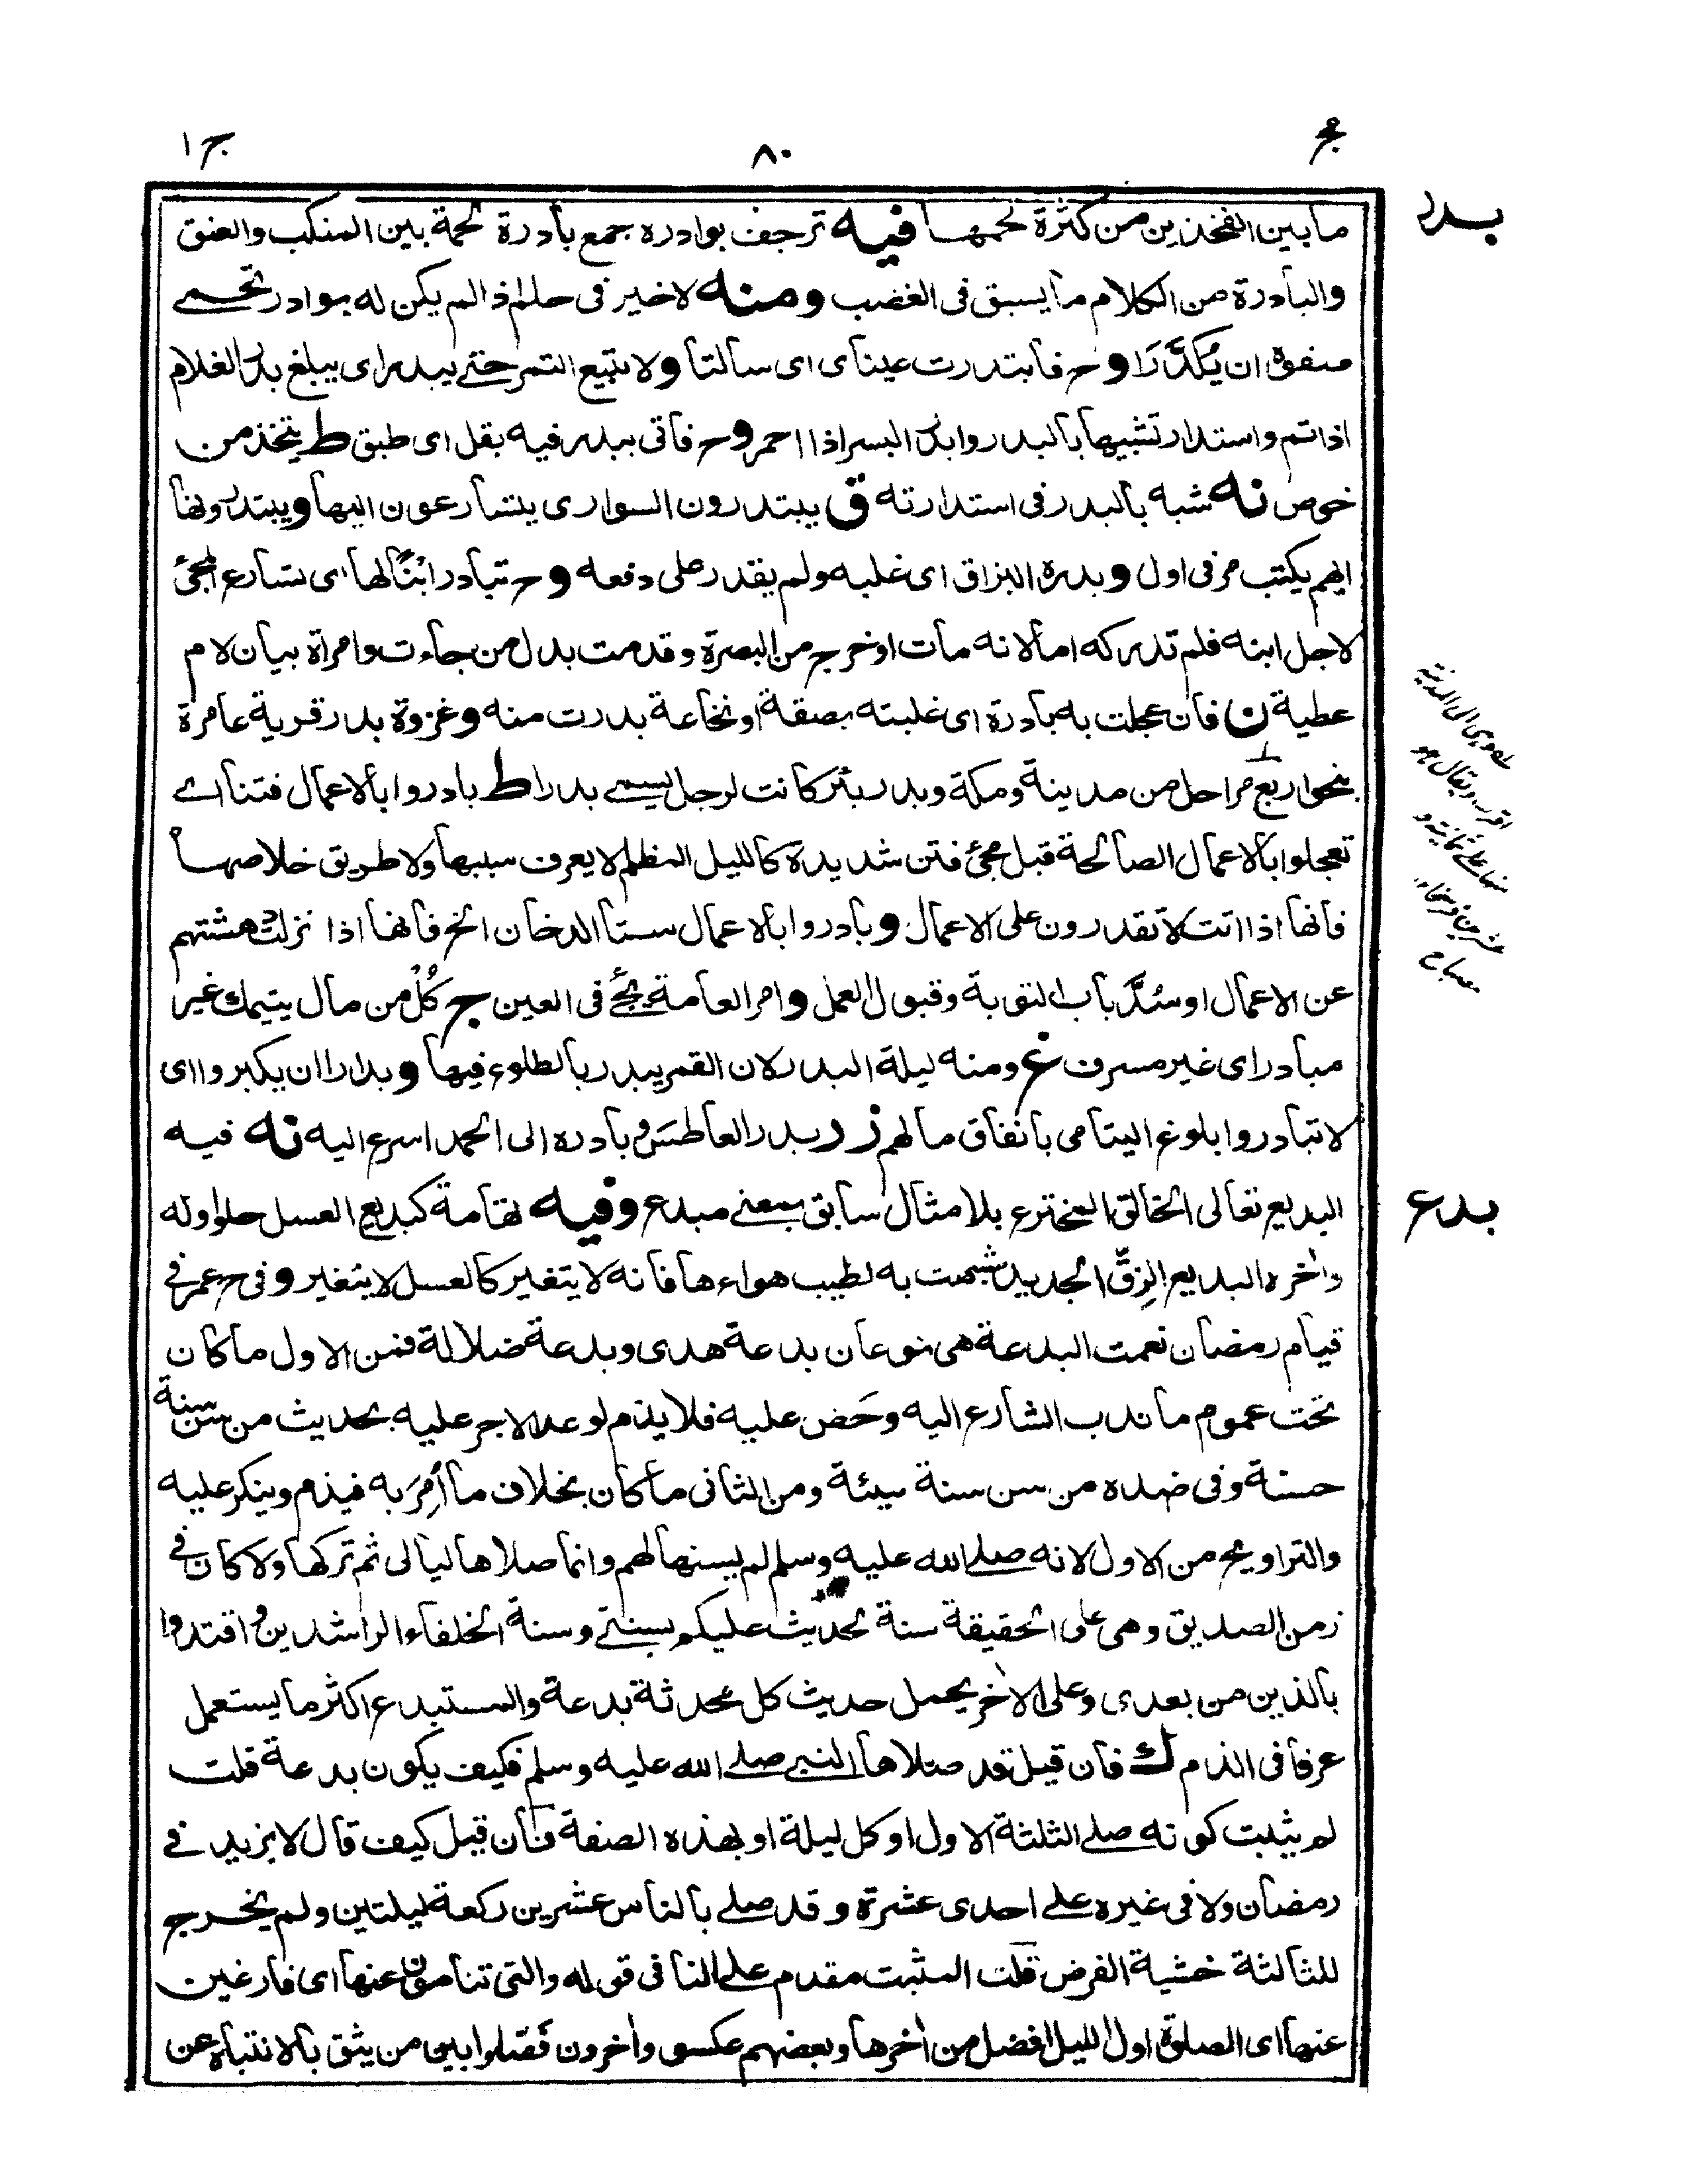 ج ١
٨٠
بدر
ما بين الفخذين من كثرة لحمها فيه ترجف بوادره جمع بادرة لحمة بين المنكب والعنق
والبادرة من الكلام ما يسبق فى الغضب ومنه لا خير فى حلم اذا لم يكن له بوادر تحمى
صفوه ان يُكدَّرَا وح فابتدرت عيناى اى سالتا ولا نبيع التمر حتے يبدر اى يبلغ بدر الغلام
اذا تم واستدار تشبيها بالبدر وابدر البسر اذا احمر وح فاتى ببدر فيه بقل اى طبق ط يتخذ من
خوص نه شبه بالبدر فى استدارته ق يبتدرون السوارى يتسارعون اليها ويبتدرونها
ايهم يكتب مر فى اول وبدره البزاق اى غلبه ولم يقدر على دفعه وح تبادر ابنًا لها اى تسارع المجئ
لاجل ابنه فلم تدركه اما لانه مات او خرج من البصرة وقدمت بدل من جاءت وامراة بيان لام
عطية ن فان عجلت به بادرة اى غلبته بصقة او نخاعة بدرت منه وغزوة بدر قرية عامرة
بنحو اربع مراحل من مدينة ومكة وبدر بئر كانت لرجل يسمى بدرا ط بادروا بالاعمال فتنا اے
تعجلوا بالاعمال الصالحة قبل مجئ فتن شديدة كالليل المظلم لا يعرف سببها ولا طريق خلاصها
فانها اذا اتت لا تقدرون على الاعمال وبادروا بالاعمال ستا الدخان الخ فانها اذا نزلت دهشتهم
عن الاعمال او سُدَّ باب التوبة وقبول العمل وامر العامة يجئ فى العين ج كُلْ من مال يتيمك غير
مبادر اى غير مسرف غ ومنه ليلة البدر لان القمر يبدر بالطلوع فيها وبدارا ان يكبروا اى
لا تبادروا بلوغ اليتامى بانفاق مالهم زر بدر العاطس وبادره الى الحمد اسرع اليه نه فيه
بدع
البديع تعالى الخالق المخترع بلا مثال سابق بمعنے مبدع وفيه تهامة كبديع العسل حلو اوله
واٰخره البديع الزِقّ الجديد شبهت به لطيب هواءها فانه لا يتغير كالعسل لا يتغير وفى ح عمر فے
قيام رمضان نعمت البدعة هى نوعان بدعة هدى وبدعة ضلالة فمن الاول ما كان
تحت عموم ما ندب الشارع اليه وحَض عليه فلا يذم لوعد الاجر عليه بحديث من سن سنة
حسنة وفى ضده من سن سنة سيئة ومن الثانى ما كان بخلاف ما أُمِرَ به فيذم وينكر عليه
والتراويح من الاول لانه صلے الله عليه وسلم لم يسنها لهم وانما صلاها ليالى ثم تركها ولا كان فے
زمن الصديق وهى على الحقيقة سنة لحديث عليكم بسنتے وسنة الخلفاء الراشدين واقتدوا
بالذين من بعدى وعلى الاٰخر يحمل حديث كل محدثة بدعة والمستبدع اكثر ما يستعمل
عرفا فى الذم ك فان قيل قد صلاها النبى صلے الله عليه وسلم فكيف يكون بدعة قلت
لم يثبت كونه صلے الثلثة الاول او كل ليلة او بهذه الصفة فان قيل كيف قال لا يزيد فے
رمضان ولا فى غيره علے احدى عشرة وقد صلے بالناس عشرين ركعة ليلتين ولم يخرج
للثالثة خشية الفرض قلت المثبت مقدم علے النافى قوله والتى تنامون عنها اى فارغين
عنها اى الصلوة اول الليل افضل من اٰخرها وبعضهم عكسوا واٰخرون فَصّلوا بين من يثق بالانتباه عن